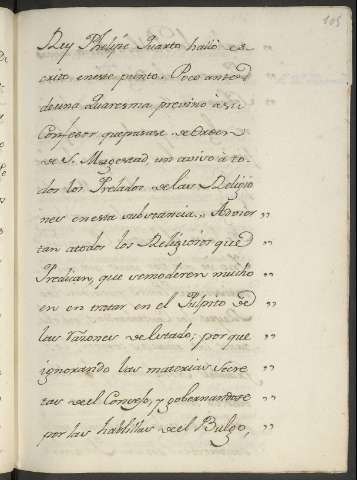 105
Rey Phelipe Quarto halló es
crito, en este punto. Poco antes
de una Quaresma previno à su
Confesor que pasase de Orden
de S. Magestad, un aviso à to-
dos los Prelados de las Religio
nes en esta substancia. „ Advier „
tan a todos los Religiosos que „
Predican, que se moderen mucho „
en en tratar en el Pulpito de „
las Razones de Estado; por que „
ignorando las materias Secre „
tas de el Consejo, y gobernandose „
por las hablillas de el Bulgo, „